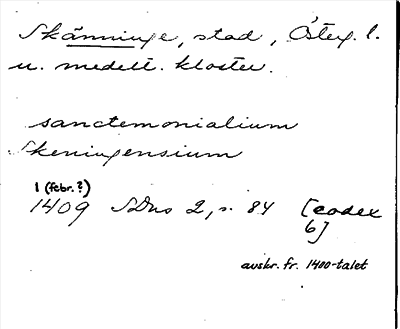 Skänninge, stad, Österg. l.
u. medelt. kloster.
sanctemonialium
Skeningensium
1 (febr.?)
1409 SDns 2, s. 84 [codex
6]
avskr. fr. 1400-talet